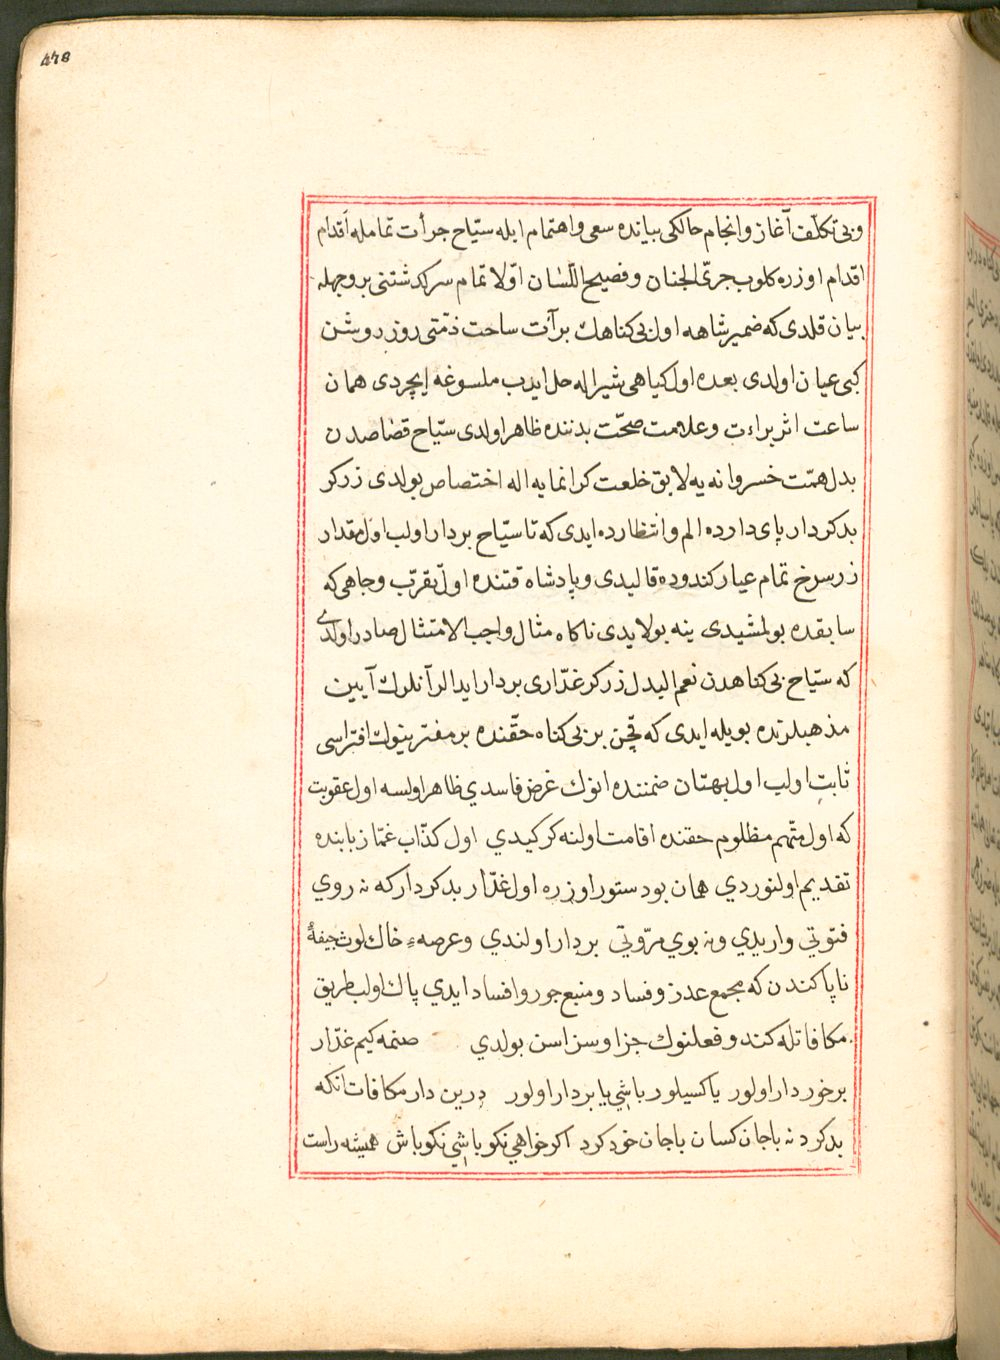 478
وبى تكلّف آغاز وانجام حالكى بيانده سعى واهتمام ايله سيّاح جرأت تمامله اَقدام
اقدام اوزره كلوب جرىّ الجنان وفصيح اللّسان اوّلا تمام سركذشتنى بر وجهله
بيان قلدى كه ضمير شاهه اول بى كناهك برأت ساحت ذمّتى روز روشن
كبى عيان اولدى بعده اول كياهى شير اله حل ايدب ملسوغه ايچردى همان
ساعت اثر براءت وعلامت صحّت بدننده ظاهر اولدى سيّاح قصاصدن
بدل همّت خسروانه يه لايق خلعت كرانمايه اله اختصاص بولدى زركر
بدكردار پاى دارده الم وانتظارده ايدى كه تا سيّاح بردار اولب اول مقدار
زر سرخ تمام عيار كندوده قاليدى وپادشاه قتنده اول تقرّب وجاهى كه
سابقده بولمشيدى ينه بولايدى ناكاه مثال واجب الامتثال صادر اولدى
كه سيّاح بى كناهدن نعم البدل زركر غدّارى بردار ايدالر آنلرك آيين
مذهبلرنده بويله ايدى كه قچن بر بى كناه حقّنده بر مفترينوك افتراسى
ثابت اولب اول بهتان ضمننده انوك غرض فاسدي ظاهر اولسه اول عقوبت
كه اول متّهم مظلوم حقنده اقامت اولنه كركيدي اول كذّاب غمّاز بابنده
تقديم اولنوردي همان بو دستور اوزره اول غدّار بدكردار كه نه روي
فتوتي واريدي ونه بوي مرّوتي بردار اولندي وعرصهء خاك لوث جيفهٔ
ناپاكندن كه مجمع عدز وفساد ومنبع جور وافساد ايدي پاك اولب طريق
مكافاتله كندو فعلنوك جزا وسزاسن بولدي صنمه كيم غدّار
برخوردار اولور يا كسيلور باشي يا بردار اولور درين دار مكافات انكه
بد كرد نه باجان كسان باجان خود كرد اكر خواهي نكو باشي نكو باش هميشه راست